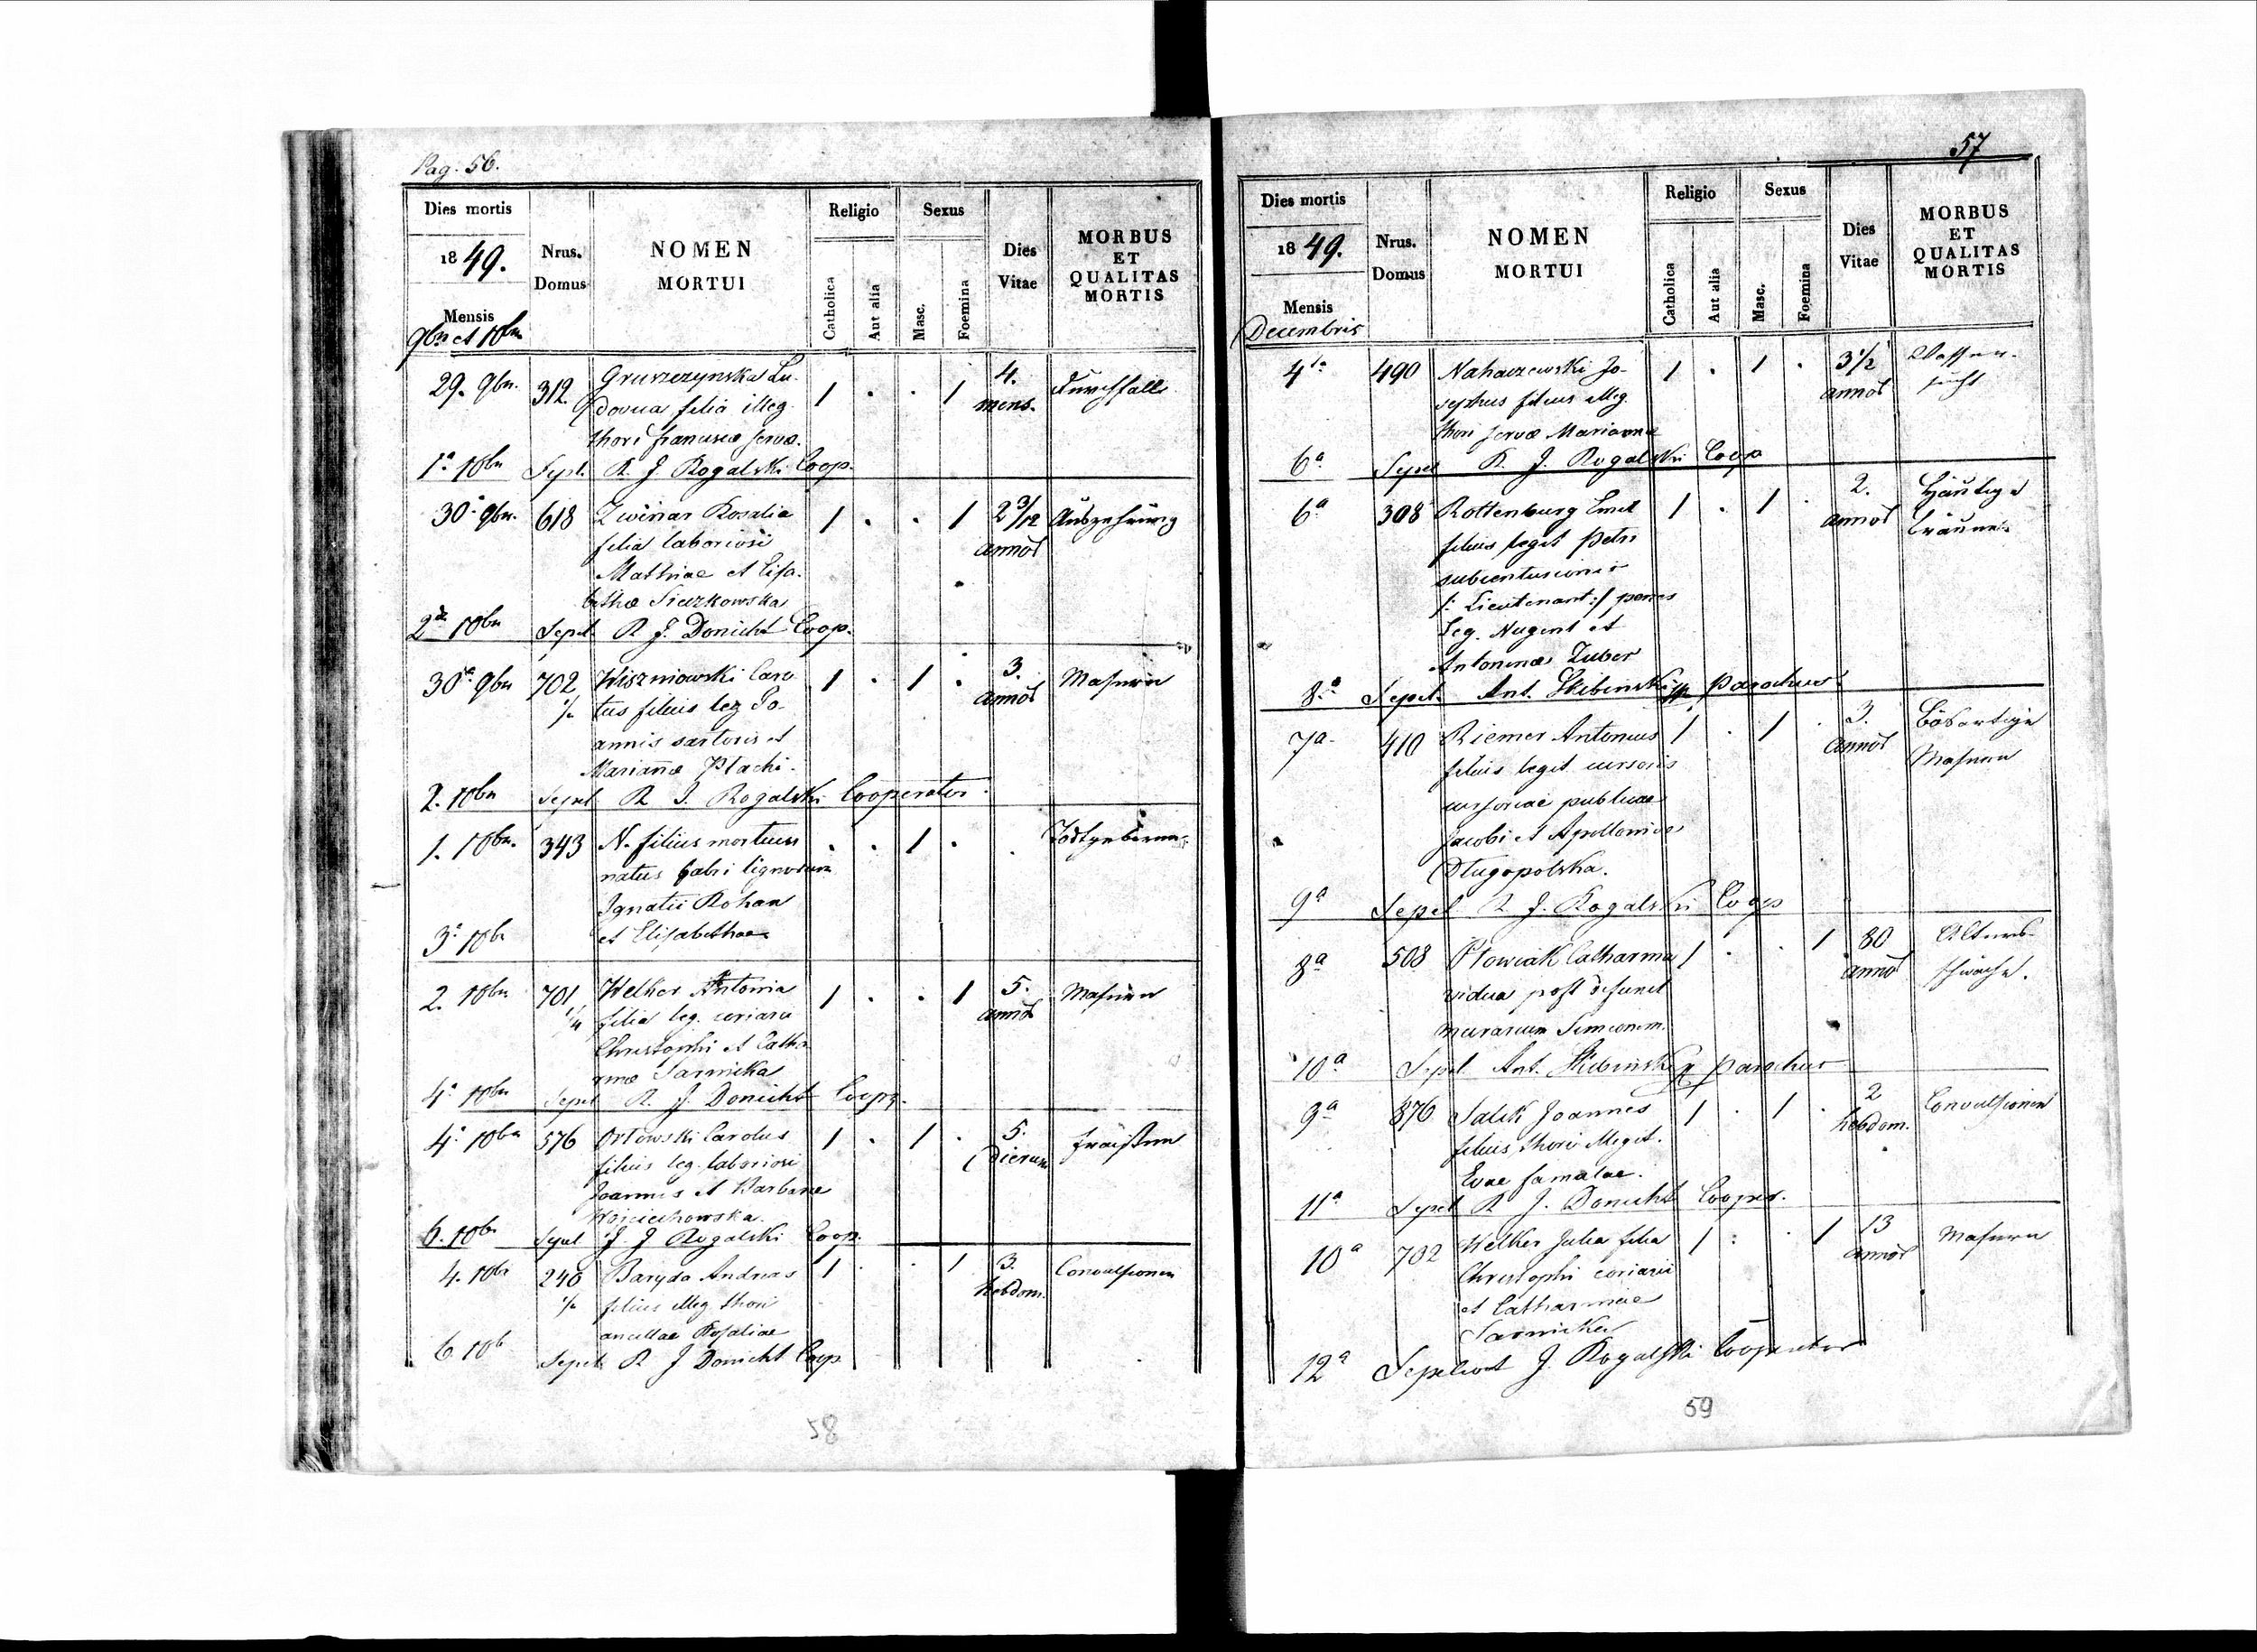 Pag. 56.
Dies mortis
1849.
Mensis
9bris et 10bris
Nrus.
Domus
NOMEN
MORTUI
Religio
Catholica
Aut alia
Sexus
Masc.
Foemina
Dies
Vitae
MORBUS
ET
QUALITAS
MORTIS
29. 9br. 312. Gruszczynska Lu- 1 . . 1 4. Durchfall
dovica filia illeg. mens.
thori franciscae servae.
1a 10br Sepel. R. J. Rogalski Coop.
30a 9br. 618 Zwinar Rosalia 1 . . 1 2 3/12 Auszehrung
filia laboriosi annor
Mathiae et Elisa-
bethae Sieczkowska
2da 10br Sepel. R J. Donicht Coop.
30a 9br 702 Wiszniowski Caro- 1 . 1 . 3. Masern
tus filius leg Jo- annor
annis sartoris et
Mariannae Ptachi-
2. 10br Sepel R J. Rogalski Cooperator.
1. 10br. 343 N. filius mortuus . . 1 . . Todtgeboren
natus fabri lignorum
Ignatii Rohan
3a 10br et Elisabethae
2. 10br 701 Welker Antonia 1 . . 1 5. Masern
1/4 filia leg. coriarii annor
Christophi et Catha-
rinae Sarnicka
4a 10br Sepel R. J. Donicht Coop.
4a 10br 576 Orlowski Carolus 1 . 1 . 5. Fraisen
filius leg. laboriosi dierum
Joannis et Barbarae
Wojciechowska.
6. 10br Sepel J. J Rogalski Coop.
4. 10br 240 Baryda Andreas 1 . . 1 3. Convulsionen
filius illeg thori hebdom.
ancillae Rosaliae
6 10b Sepel R J Donicht Coop
58
57
Dies mortis
1849.
Mensis
Decembris
Nrus.
Domus
NOMEN
MORTUI
Religio
Catholica
Aut alia
Sexus
Masc.
Foemina
Dies
Vitae
MORBUS
ET
QUALITAS
MORTIS
4ta 490 Naharzewski Jo- 1 . 1 . 3 1/2 Wasser-
sephus filius illeg. annor sucht
thori servae Mariannae
6a Sepel R. J. Rogalski Coop
6a 308 Rottenburg Emil 1 . 1 . 2. Häutige
filius legit Petri annor Bräune
subcenturionis
/: Lieutenant :/ penes
Leg. Nugent et
Antoninae Zuber
8a Sepel. Ant. Skibinski parochus
7a 410 Riemer Antonius 1 . 1 . 3. Bösartige
filius legit cursoris annor Masern
cursoriae publicae
Jacobi et Apolloniae
Dlugopolska.
9a Sepel R J. Rogalski Coop
8a 508 Plowiak Catharina 1 . . 1 80 Alters-
vidua post defunct annor schwäche.
murarium Simeonem.
10a Sepel Ant. Skibinski parochus
9a 876 Salik Joannes 1 . 1 . 2 Convulsionen
filius thori illegit. hebdom.
Evae famulae.
11a Sepel R J. Donicht Cooper.
10a 702 Welker Julia filia 1 . . 1 13 Masern
Christophi coriarii annor
et Catharinae
Sarnicka
12a Sepelivit J. Rogalski Cooperator
59